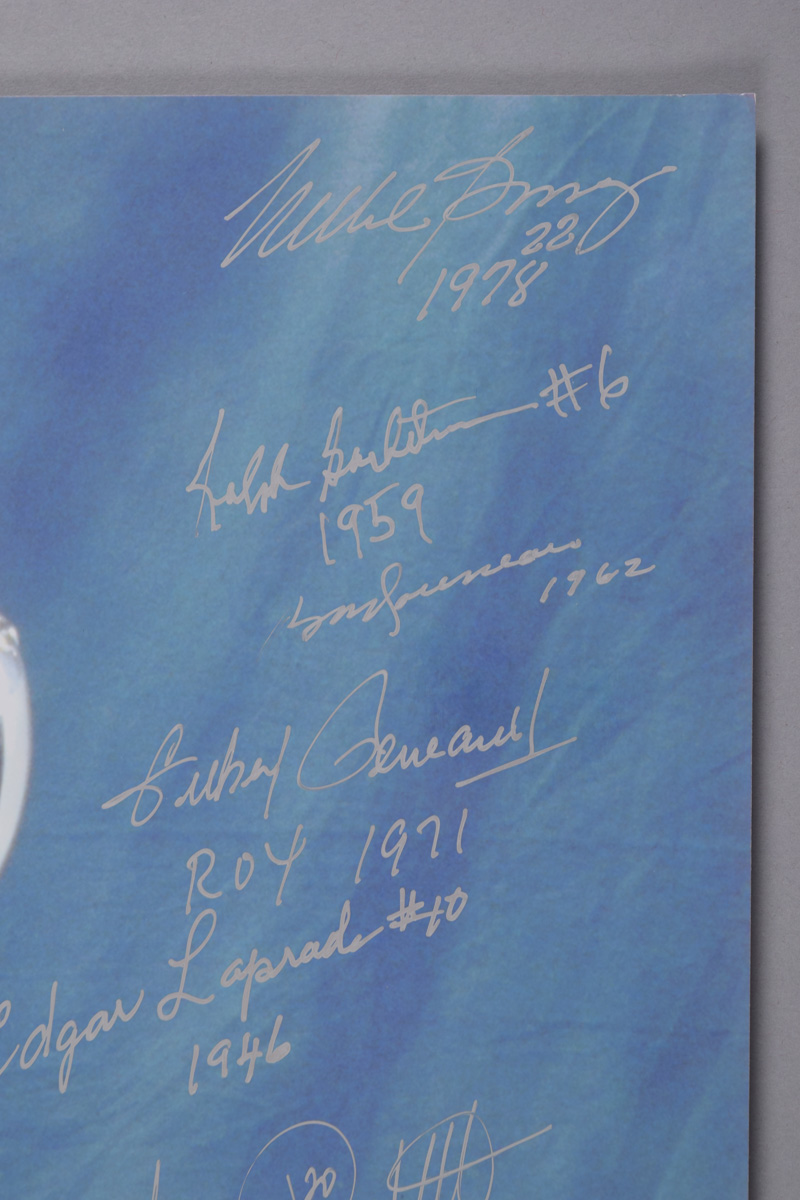 Mike Bossy
22
1978
Ralph Backstrom #6
1959
Bob Rousseau
1962
Gilbert Perreault
ROY 1971
Edgar Laprade #10
1946
120